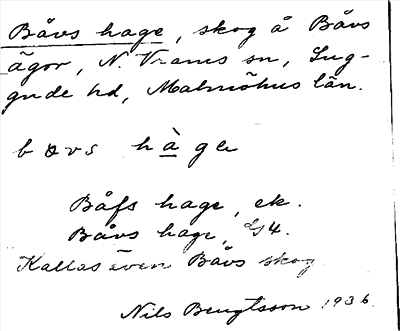 Båvs hage, skog å Båvs
ägor, N. Vrams sn, Lug-
gude hd, Malmöhus län.
bovs hàge
Båfs hage, ek.
Båvs hage, 4.
Kallas även Båvs skog
Nils Bengtsson 1936.